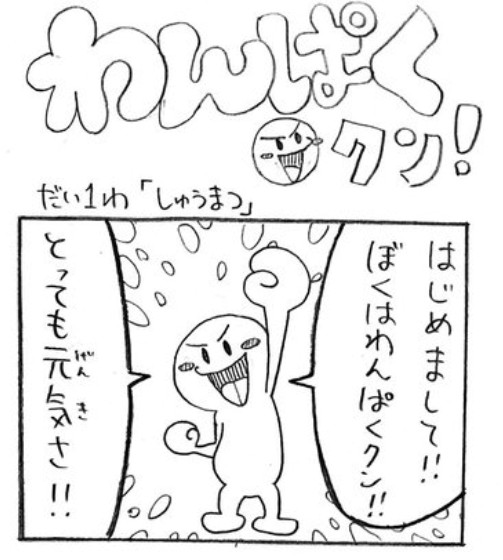 わんぱく
クン!
だい1わ「しゅうまつ」
はじめまして!!
ぼくはわんぱくクン!!
とっても元気さ!!
げんき